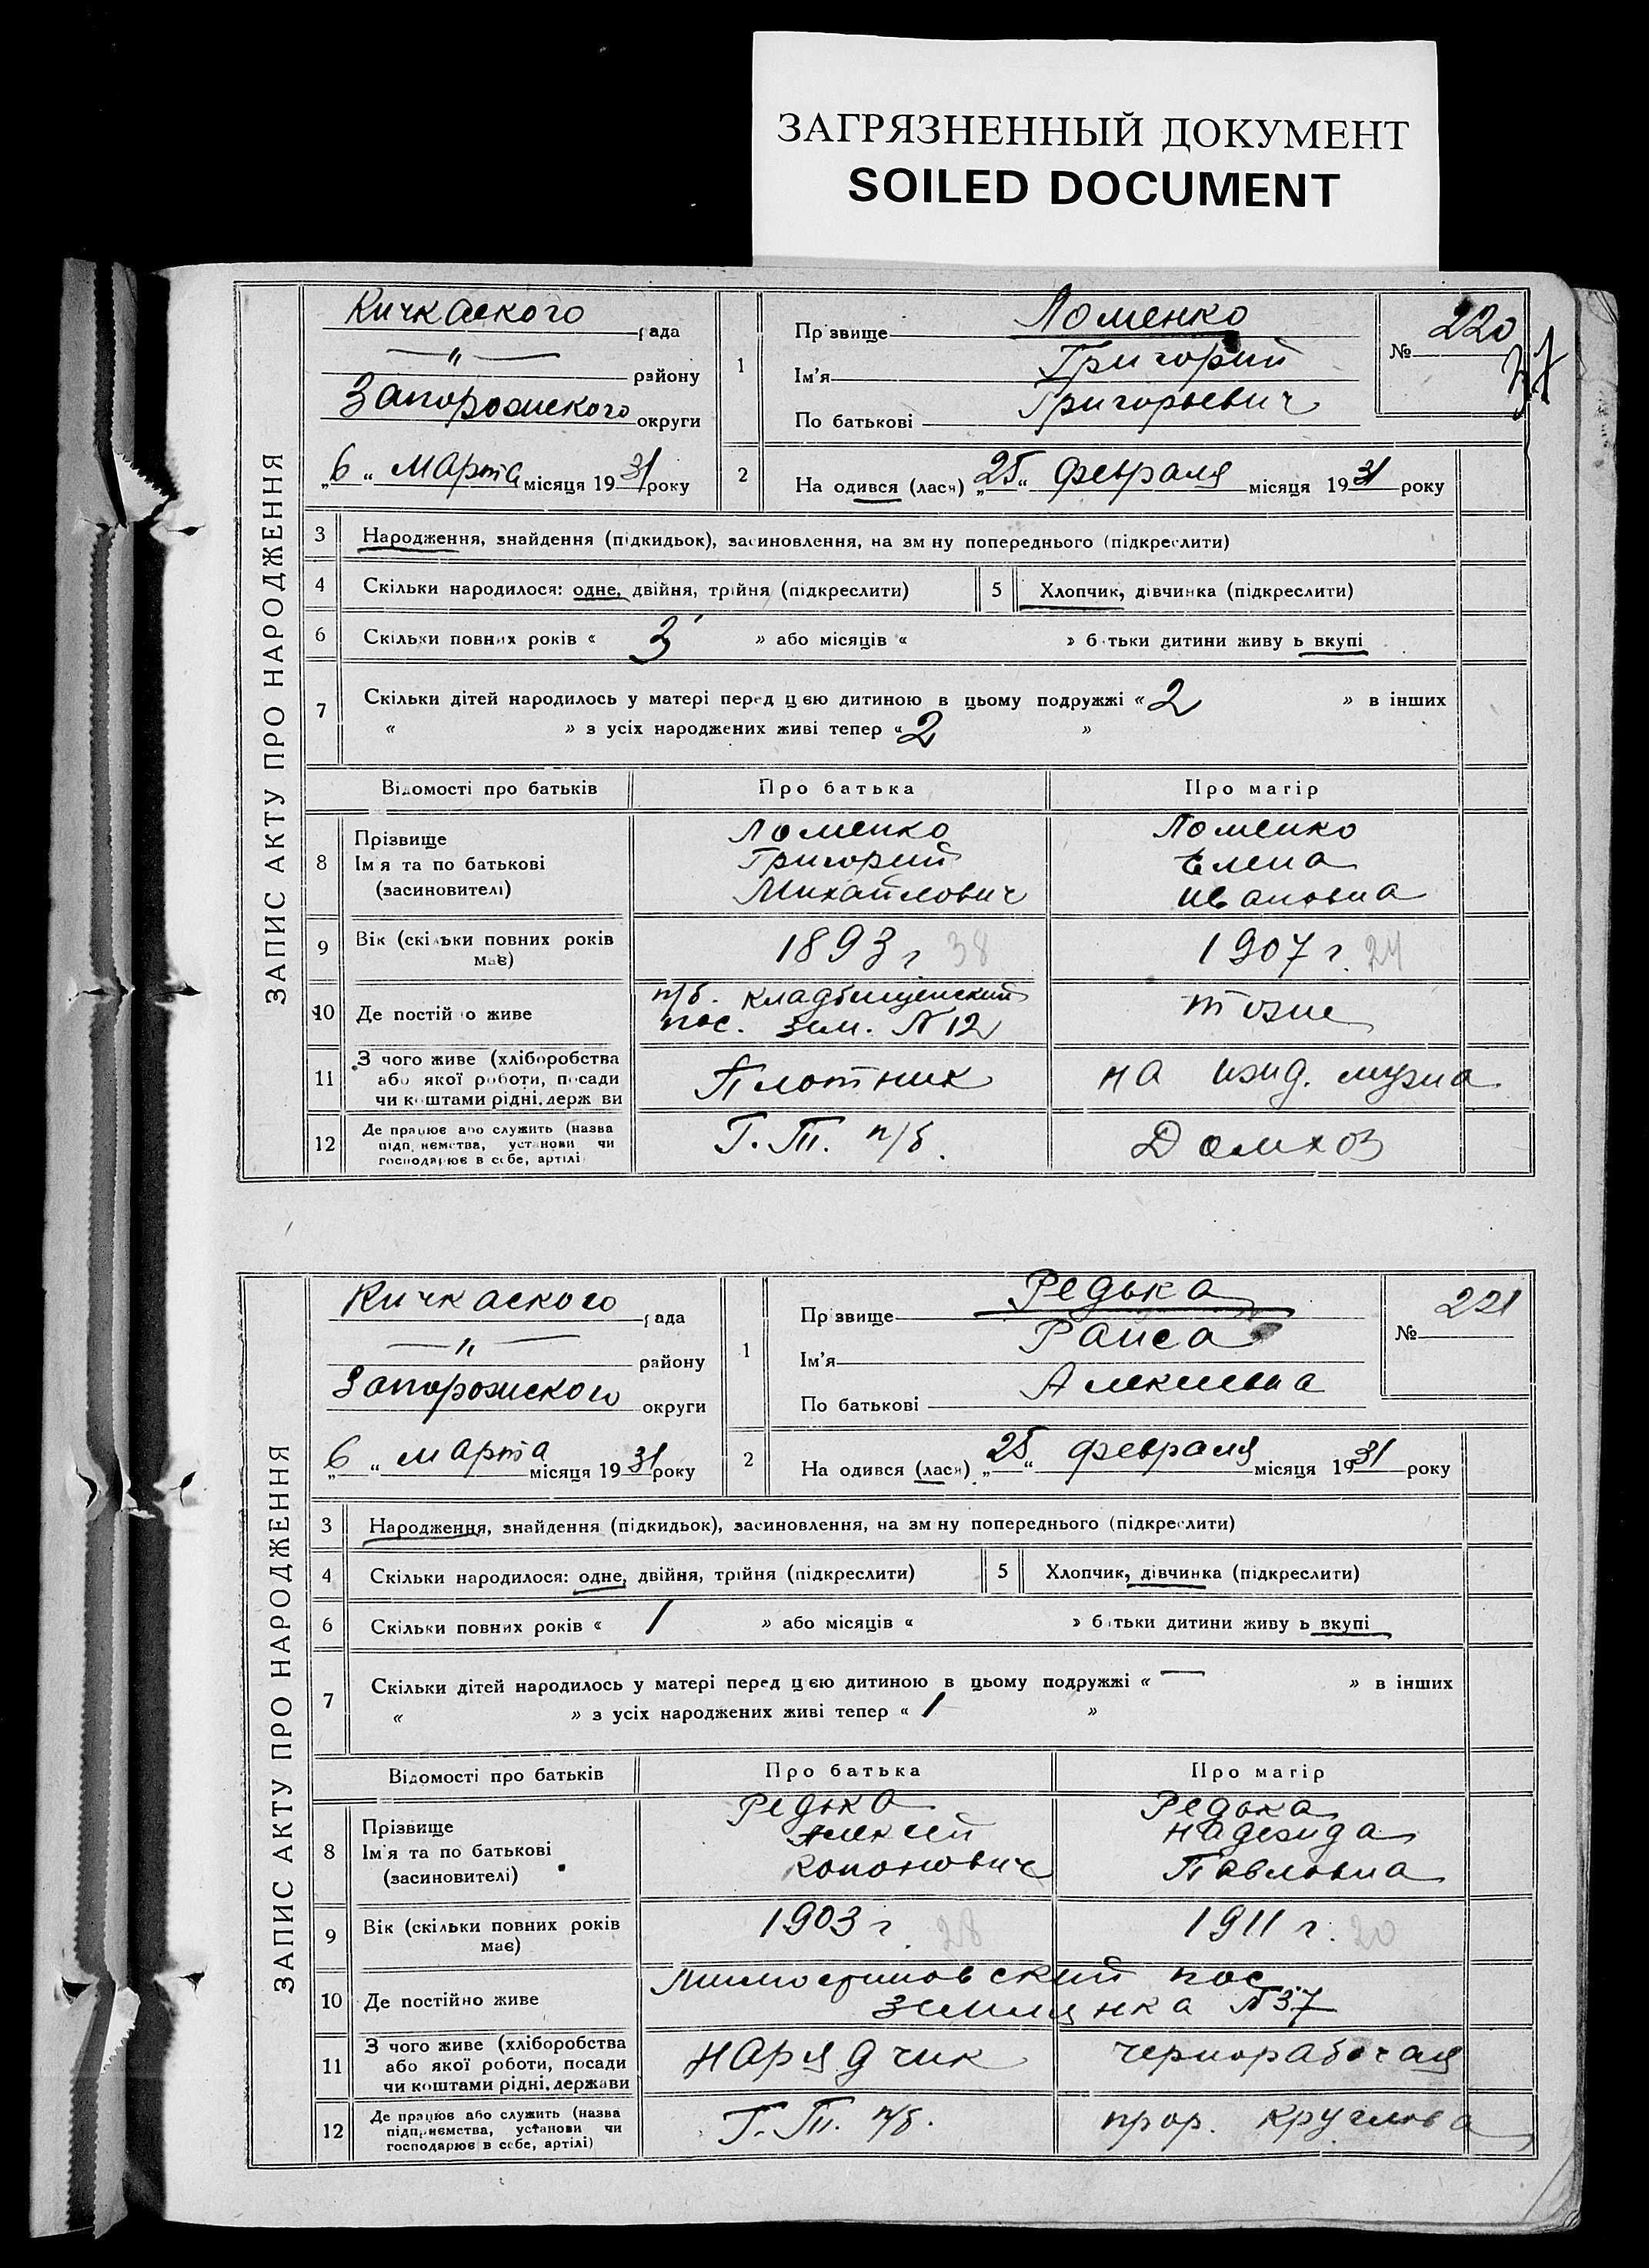 ЗАГРЯЗНЕННЫЙ ДОКУМЕНТ
SOILED DOCUMENT
ЗАПИС АКТУ ПРО НАРОДЖЕННЯ
Кичкаского рада
—"— району
Запорожского округи
„6" Марта місяця 1931 року
1
Прізвище Ломенко
Ім'я Григорий
По батькові Григорьевич
№ 220
37
2 На одився (лася) „25" февраля місяця 1931 року
3 Народження, знайдення (підкидьок), засиновлення, на зміну попереднього (підкреслити)
4 Скільки народилося: одне, двійня, трійня (підкреслити)
5 Хлопчик, дівчинка (підкреслити)
6 Скільки повних років « 3 » або місяців « » батьки дитини живуть вкупі
7 Скільки дітей народилось у матері перед цією дитиною в цьому подружжі « 2 » в інших
« » з усіх народжених живі тепер « 2 »
Відомості про батьків Про батька Про матір
8 Прізвище Ломенко Ломенко
Ім'я та по батькові Григорий Елена
(засиновителі) Михайлович Ивановна
9 Вік (скільки повних років має) 1893 г. 38 1907 г. 24
10 Де постійно живе п/б. Кладбищенский тоже
пос. зем. N 12
11 З чого живе (хліборобства
або якої роботи, посади Плотник на ижд. мужа
чи коштами рідні, держави
12 Де працює або служить (назва
підприємства, установи чи Г. П. п/б. Домхоз
господарює в себе, артілі)
ЗАПИС АКТУ ПРО НАРОДЖЕННЯ
Кичкаского рада
—"— району
Запорожского округи
„6" марта місяця 1931 року
1
Прізвище Редька
Ім'я Раиса
По батькові Алексеевна
№ 221
2 На одився (лася) „25" февраля місяця 1931 року
3 Народження, знайдення (підкидьок), засиновлення, на зміну попереднього (підкреслити)
4 Скільки народилося: одне, двійня, трійня (підкреслити)
5 Хлопчик, дівчинка (підкреслити)
6 Скільки повних років « 1 » або місяців « » батьки дитини живуть вкупі
7 Скільки дітей народилось у матері перед цією дитиною в цьому подружжі « — » в інших
« » з усіх народжених живі тепер « 1 »
Відомості про батьків Про батька Про матір
8 Прізвище Редька Редька
Ім'я та по батькові Алексей Надежда
(засиновителі) Кононович Павловна
9 Вік (скільки повних років має) 1903 г. 28 1911 г. 20
10 Де постійно живе пос.
землянка N 37
11 З чого живе (хліборобства
або якої роботи, посади Нарядчик Чернорабочая
чи коштами рідні, держави
12 Де працює або служить (назва
підприємства, установи чи Г. П. п/б. прор. Круглова
господарює в себе, артілі)